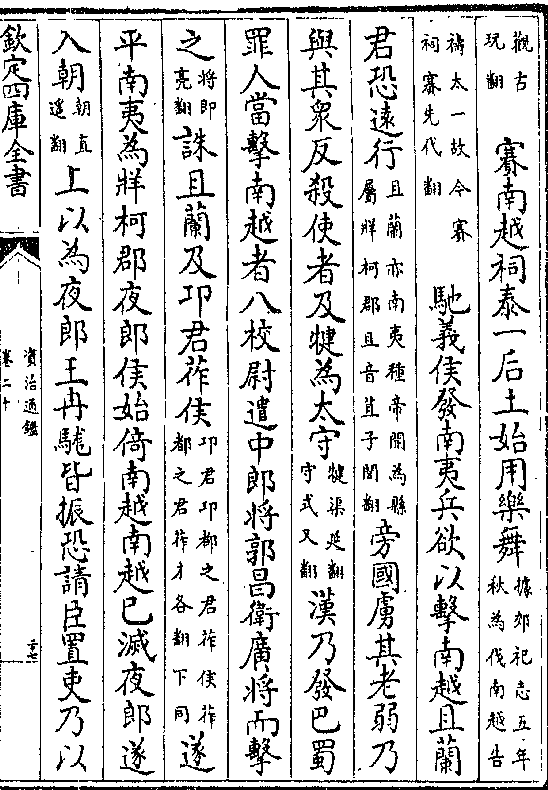 觀古玩翻　賽南越祠泰一后土始用樂舞據郊祀志五年秋為伐南越告
禱太一故今賽祠賽先代翻　馳義侯發南夷兵欲以擊南越且蘭
君恐遠行且蘭亦南夷種帝開為縣屬牂柯郡且音苴子閭翻旁國虜其老弱乃
與其衆反殺使者及犍為太守犍渠延翻守式又翻漢乃發巴蜀
罪人當擊南越者八校尉遣中郎將郭昌衛廣將而擊
之將即亮翻誅且蘭及邛君莋侯邛君邛都之君莋侯莋都之君莋才各翻下同遂
平南夷為牂柯郡夜郎侯始倚南越南越已滅夜郎遂
入朝朝直遥翻上以為夜郎王冉駹皆振恐請臣置吏乃以
欽定四庫全書
資治通鑑
卷二十